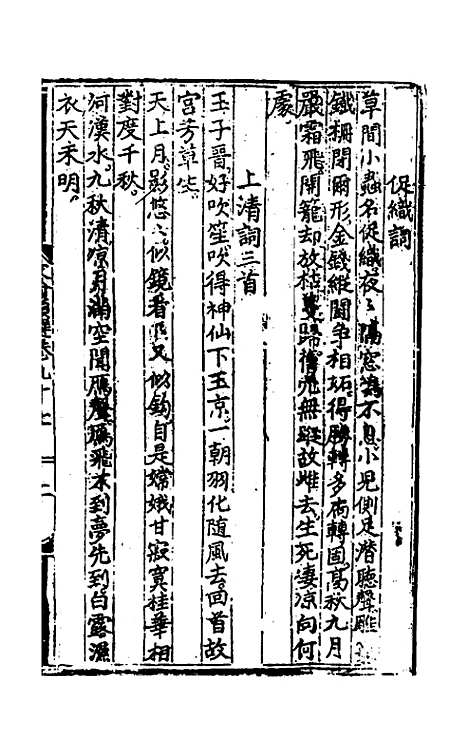 促織詞
草間小蟲名促織夜〻隔窓鳴不息小児側足潛聽聲雕
鐵柵閉爾形金錢維闘争相拓得勝轉多両轉固高秋九月
嚴霜飛開籠却放枯叢歸傍无無蹤故雌去生死凄凉向何
處
上清詞三首
王子晋好吹笙吹得神仙下玉京一朝羽化随風去回首故
宮芳草生
天上月影悠〻似鏡看来又似鈎自是嫦娥甘寂寞桂華相
對度千秋
河漢水九秋清凉月満空聞鴈聲鴈飛未到夢先到白露濕
衣天未明
卷九十七